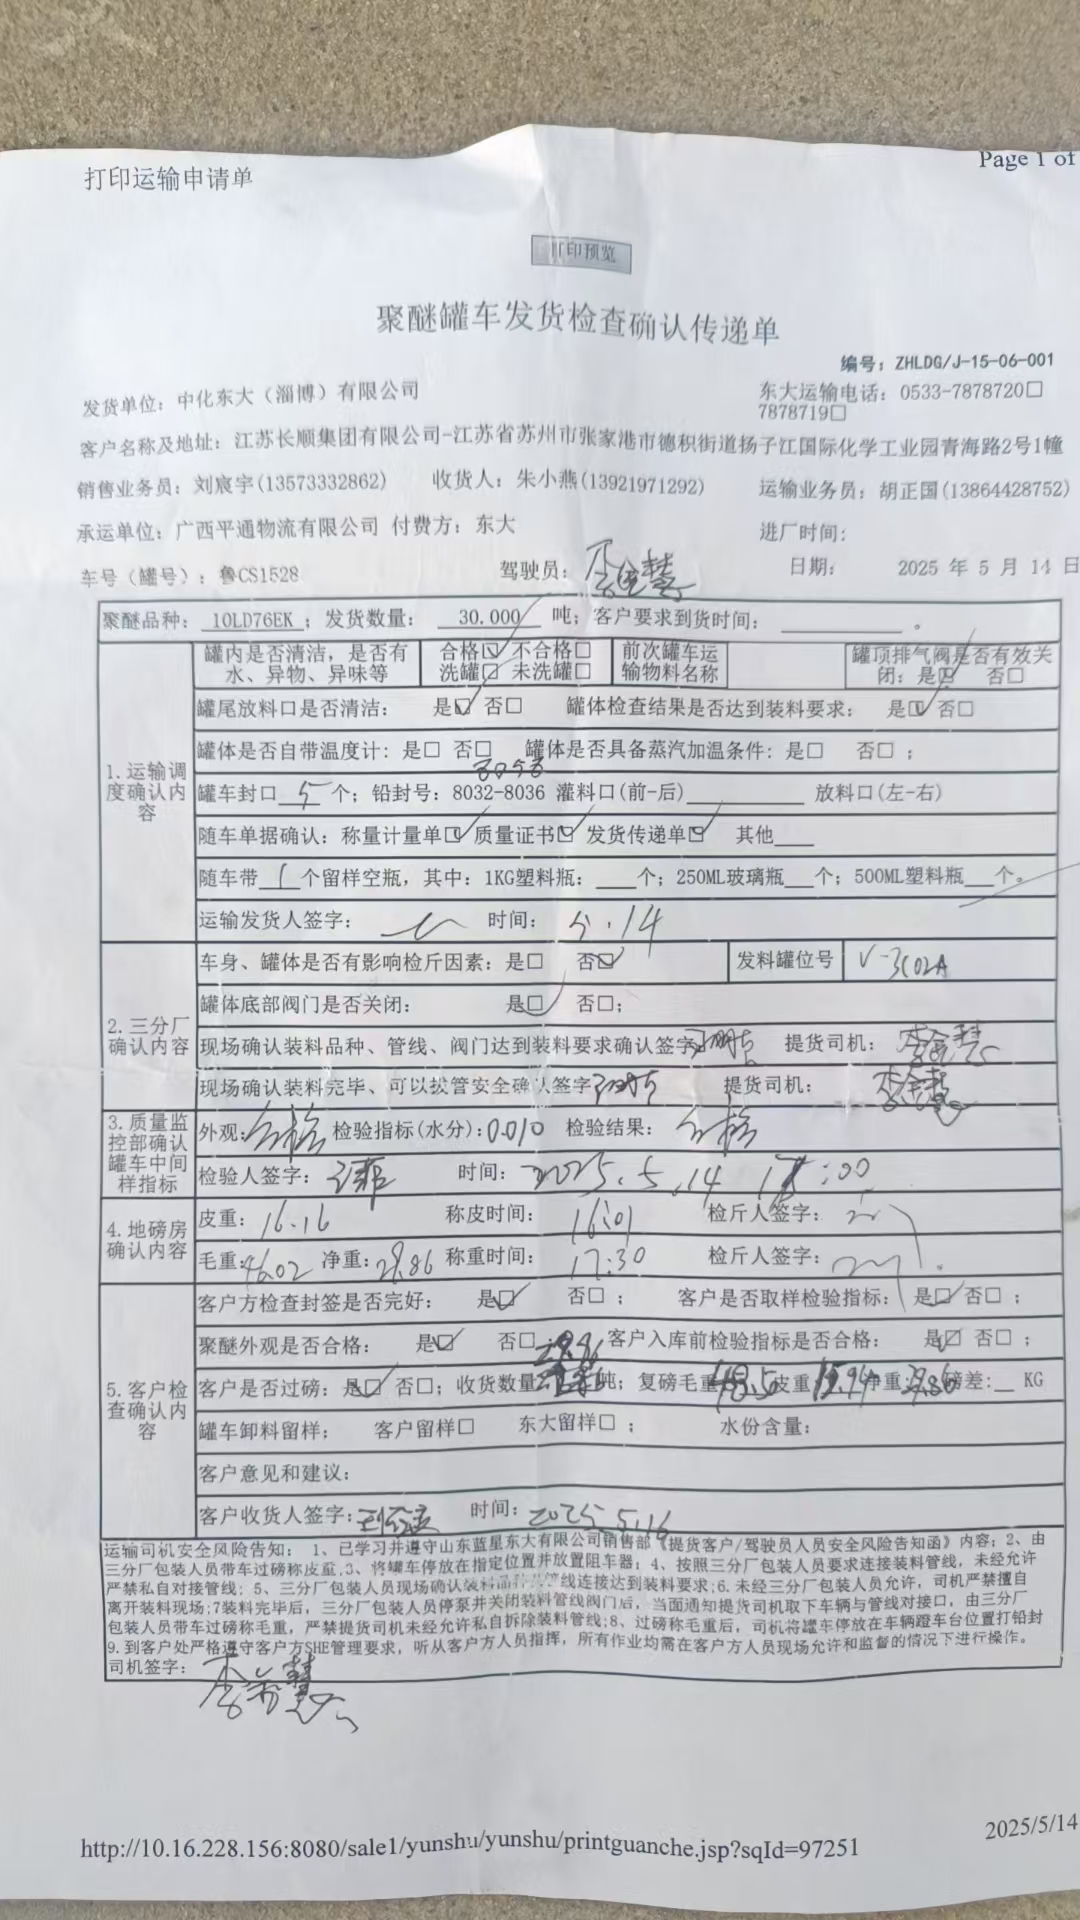 打印运输申请单
Page 1 of
打印预览
聚醚罐车发货检查确认传递单
编号：ZHLDG/J-15-06-001
发货单位：中化东大（淄博）有限公司
东大运输电话：0533-7878720□
7878719□
客户名称及地址：江苏长顺集团有限公司-江苏省苏州市张家港市德积街道扬子江国际化学工业园青海路2号1幢
销售业务员：刘宸宇(13573332862) 收货人：朱小燕(13921971292) 运输业务员：胡正国(13864428752)
承运单位：广西平通物流有限公司 付费方：东大 进厂时间：
车号（罐号）：鲁CS1528 驾驶员： 日期： 2025 年 5 月 14 日
聚醚品种： 10LD76EK ；发货数量： 30.000 吨；客户要求到货时间： 。
1.运输调度确认内容
罐内是否清洁，是否有水、异物、异味等
合格☑ 不合格□
洗罐□ 未洗罐□
前次罐车运输物料名称
罐顶排气阀是否有效关闭：是☑ 否□
罐尾放料口是否清洁： 是☑ 否□ 罐体检查结果是否达到装料要求： 是☑ 否□
罐体是否自带温度计：是□ 否□ 罐体是否具备蒸汽加温条件：是□ 否□ ；
罐车封口 5 个；铅封号：8032-8036 灌料口(前-后) 放料口(左-右)
随车单据确认：称量计量单☑ 质量证书☑ 发货传递单☑ 其他
随车带 1 个留样空瓶，其中：1KG塑料瓶： 个；250ML玻璃瓶 个；500ML塑料瓶 个。
运输发货人签字： 时间： 5.14
2.三分厂确认内容
车身、罐体是否有影响检斤因素：是□ 否☑ 发料罐位号 V-3602A
罐体底部阀门是否关闭： 是☑ 否□；
现场确认装料品种、管线、阀门达到装料要求确认签字 提货司机：
现场确认装料完毕、可以拔管安全确认签字 提货司机：
3.质量监控部确认罐车中间样指标
外观：合格 检验指标(水分)：0.010 检验结果： 合格
检验人签字： 时间：2025.5.14 :00
4.地磅房确认内容
皮重：16.16 称皮时间： 16:01 检斤人签字：
毛重：46.02 净重：29.86 称重时间： 17:30 检斤人签字：
5.客户检查确认内容
客户方检查封签是否完好： 是☑ 否□ ； 客户是否取样检验指标：是☑ 否□ ；
聚醚外观是否合格： 是☑ 否□； 客户入库前检验指标是否合格： 是☑ 否□ ；
29.86
客户是否过磅：是☑ 否□；收货数量 吨；复磅毛重 皮重 净重 磅差： KG
罐车卸料留样： 客户留样□ 东大留样□ ； 水份含量：
客户意见和建议：
客户收货人签字： 时间：2025.5.16
运输司机安全风险告知： 1、已学习并遵守山东蓝星东大有限公司销售部《提货客户/驾驶员人员安全风险告知函》内容；2、由
三分厂包装人员带车过磅称皮重,3、将罐车停放在指定位置并放置阻车器；4、按照三分厂包装人员要求连接装料管线，未经允许
严禁私自对接管线；5、三分厂包装人员现场确认装料品种及管线连接达到装料要求;6.未经三分厂包装人员允许，司机严禁擅自
离开装料现场;7装料完毕后，三分厂包装人员停泵并关闭装料管线阀门后，当面通知提货司机取下车辆与管线对接口，由三分厂
包装人员带车过磅称毛重，严禁提货司机未经允许私自拆除装料管线;8、过磅称毛重后，司机将罐车停放在车辆蹬车台位置打铅封
9.到客户处严格遵守客户方SHE管理要求，听从客户方人员指挥，所有作业均需在客户方人员现场允许和监督的情况下进行操作。
司机签字：
http://10.16.228.156:8080/sale1/yunshu/yunshu/printguanche.jsp?sqId=97251
2025/5/14